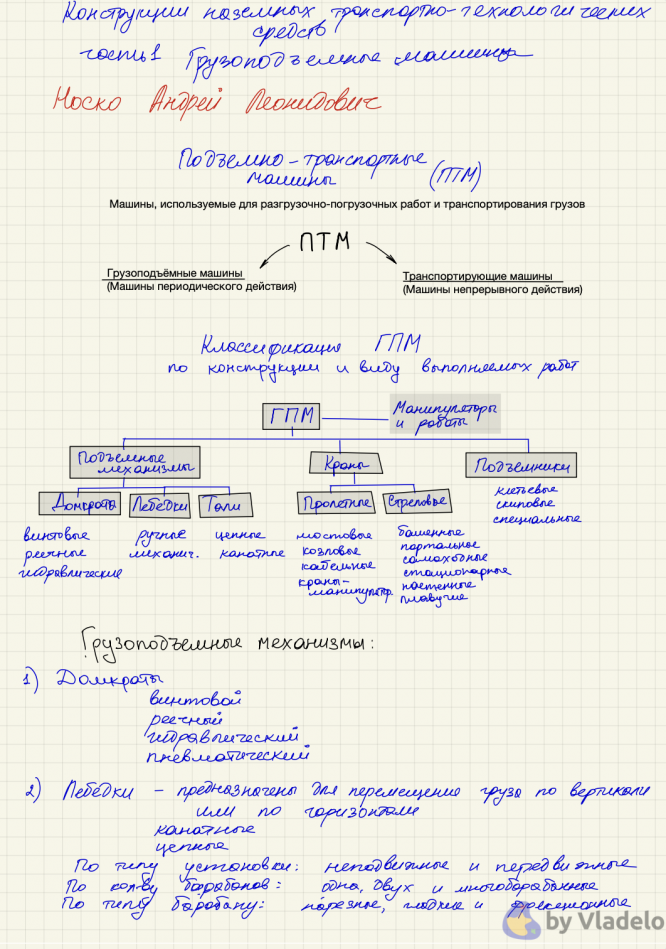 Конструкции наземных транспортно-технологических
средств
часть 1 Грузоподъемные машины
Носко Андрей Леонидович
Подъемно-транспортные
машины (ПТМ)
Машины, используемые для разгрузочно-погрузочных работ и транспортирования грузов
ПТМ
Грузоподъёмные машины
(Машины периодического действия)
Транспортирующие машины
(Машины непрерывного действия)
Классификация ГПМ
по конструкции и виду выполняемых работ
ГПМ
Манипуляторы
и роботы
Подъемные
механизмы
Краны
Подъемники
Домкраты
Лебедки
Тали
Пролетные
Стреловые
клетьевые
скиповые
специальные
винтовые
реечные
гидравлические
ручные
механич.
цепные
канатные
мостовые
козловые
кабельные
краны-
манипулятр.
башенные
портальные
самоходные
стационарные
настенные
плавучие
Грузоподъемные механизмы:
1) Домкраты
винтовой
реечный
гидравлический
пневматический
2) Лебедки – предназначены для перемещение груза по вертикали
или по горизонтали
канатные
цепные
По типу установки: неподвижные и передвижные
По кол-ву барабанов: одно, двух и многобарабанные
По типу барабану: нарезные, гладкие и фрикционные
by Vladelo